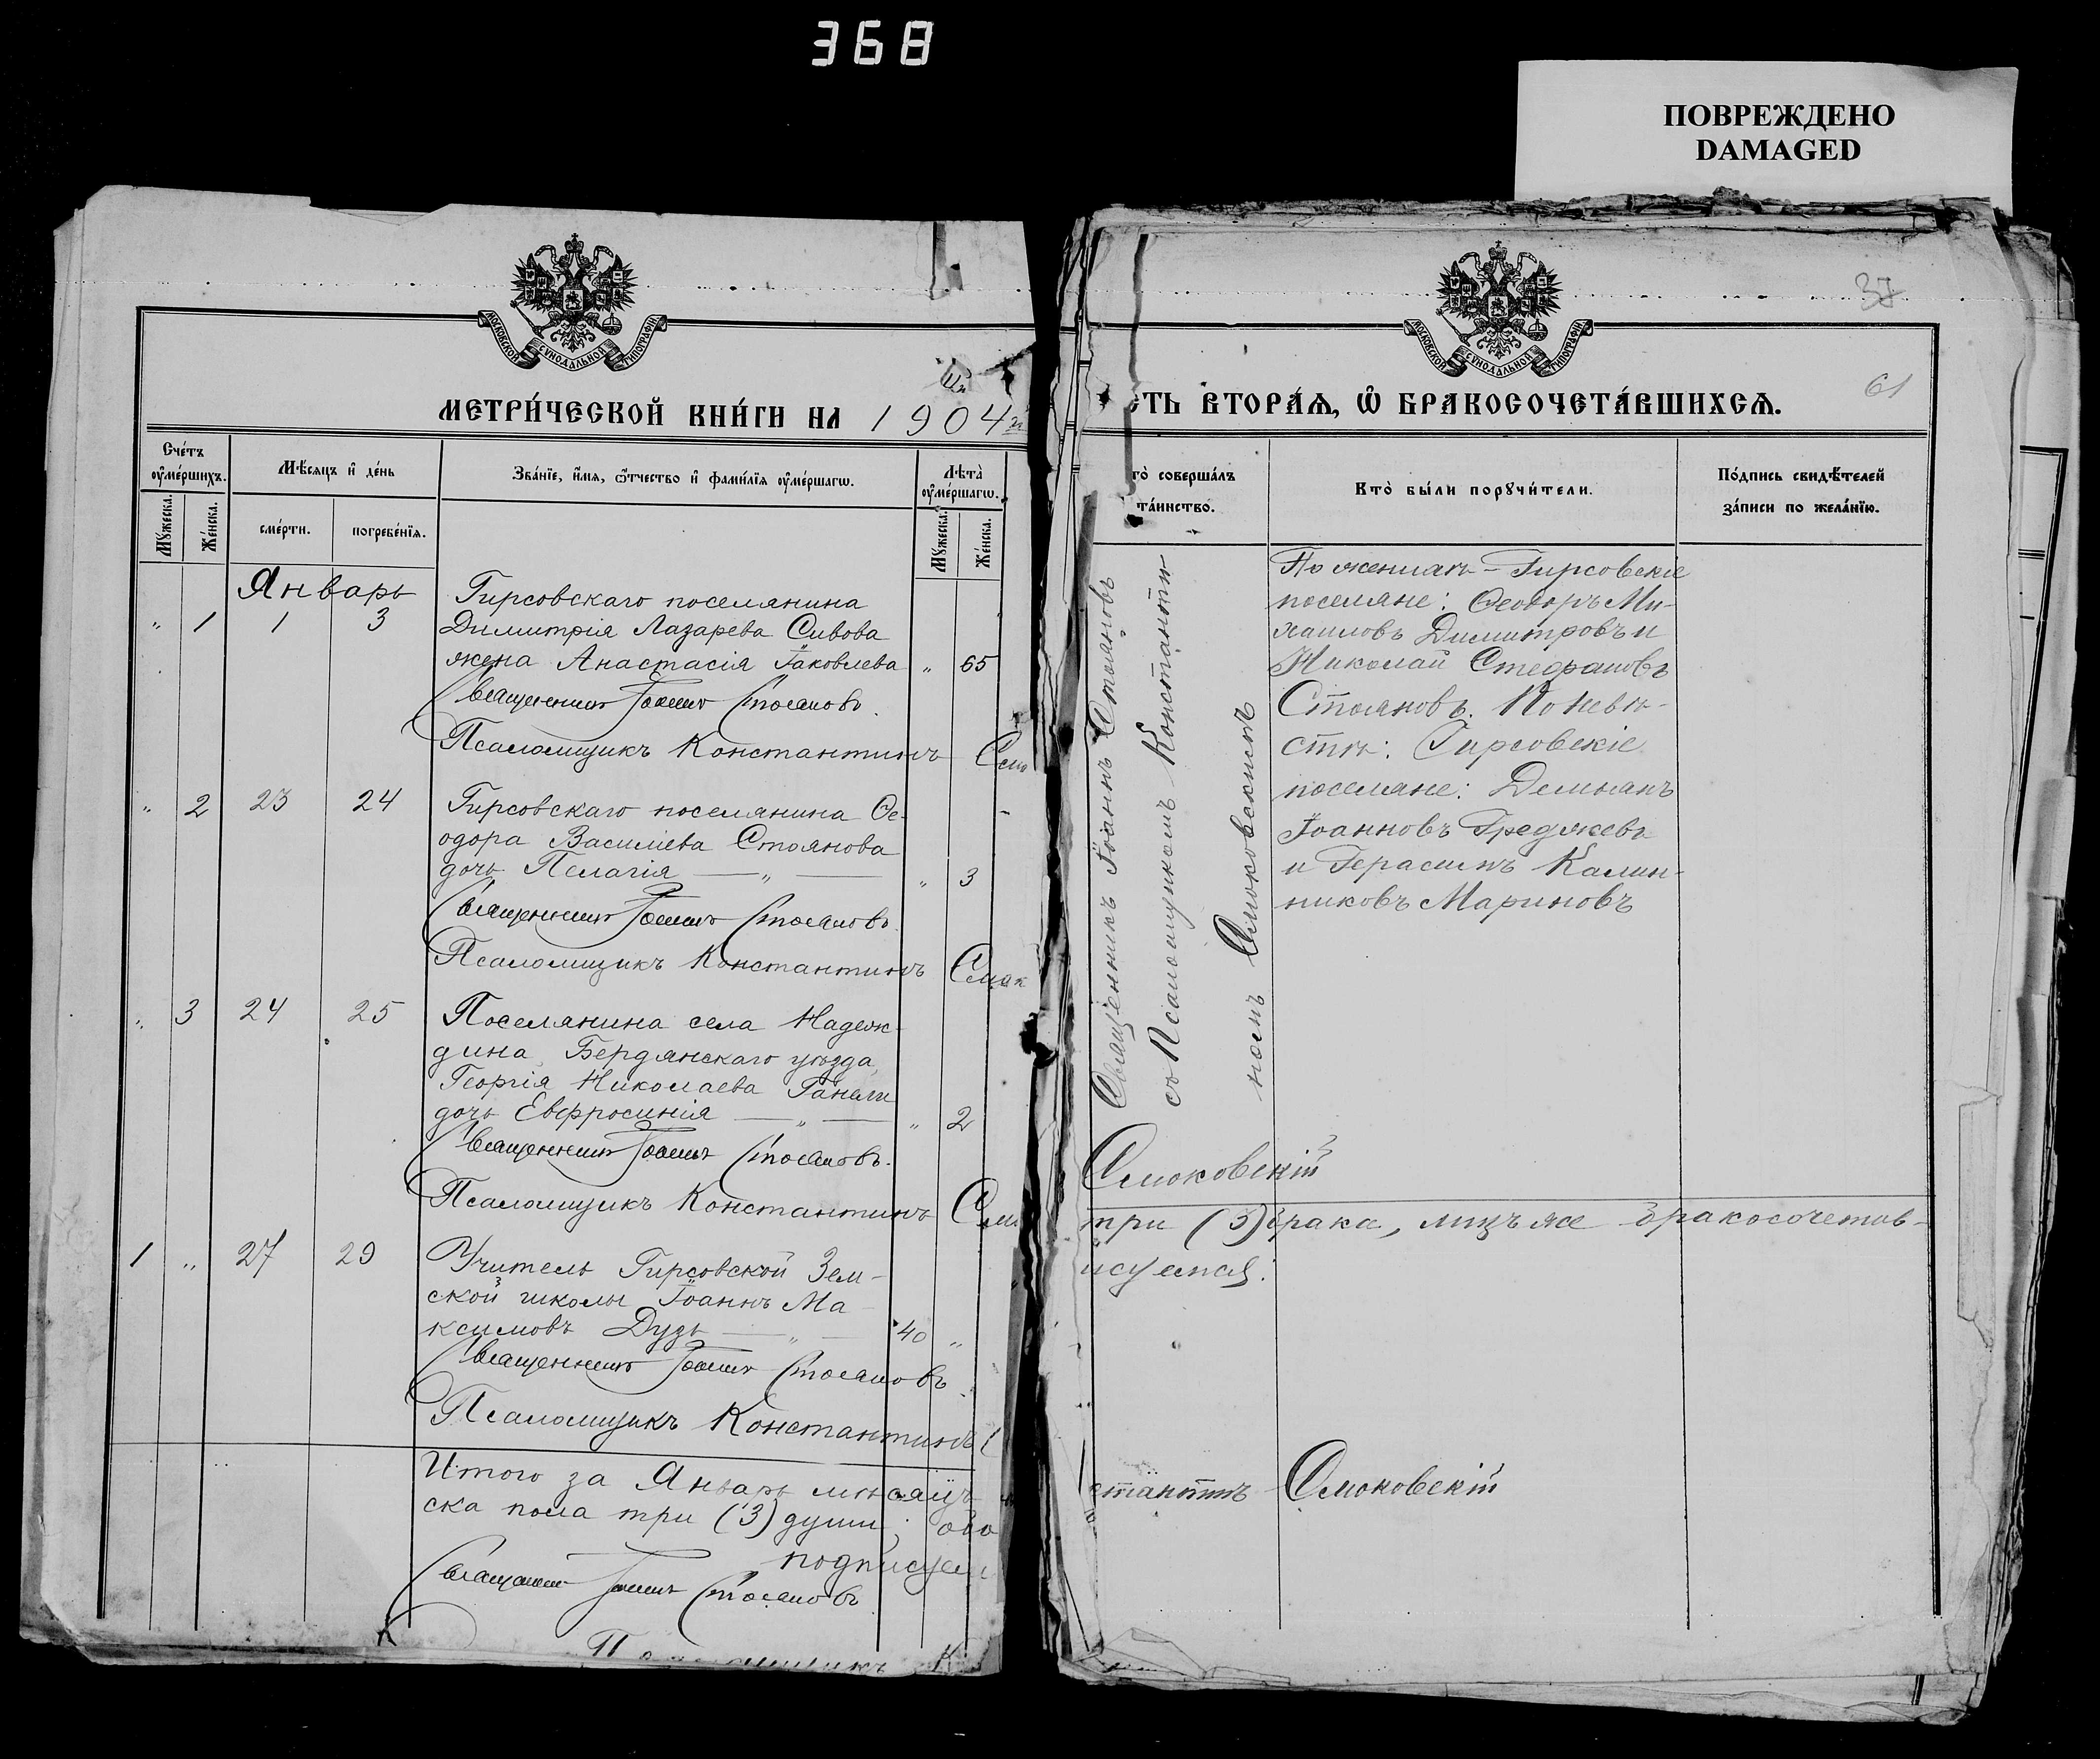 368
ПОВРЕЖДЕНО
DAMAGED
МОСКОВСКОЙ СѴНОДАЛЬНОЙ ТИПОГРАФІИ
МЕТРИ́ЧЕСКОЙ КНИ́ГИ НА 1904й
Сче́тъ ᲂу҆ме́ршихъ.
Мѣ́сяцъ и҆ де́нь
Зва́нїе, и҆́мѧ, ѻ҆́тчество и҆ фами́лїѧ ᲂу҆ме́ршагѡ.
Лѣ́та ᲂу҆ме́ршагѡ.
Мꙋ́жеска.
Же́нска.
сме́рти.
погребе́нїѧ.
Мꙋ́жеска.
Же́нска.
Январь
Гирсовскаго поселянина
" 1 1 3 Димитрія Лазарева Сивова
жена Анастасія Іаковлева " 65
Священникъ Іоаннъ Стояновъ.
Псаломщикъ Константинъ Смо
" 2 23 24 Гирсовскаго поселянина Ѳе-
одора Василіева Стоянова
дочь Пелагія — " — " 3
Священникъ Іоаннъ Стояновъ.
Псаломщикъ Константинъ Смок
" 3 24 25 Поселянина села Надеж-
дина, Бердянскаго уѣзда,
Георгія Николаева Ганели
дочь Евфросинія — " — " 2
Священникъ Іоаннъ Стояновъ.
Псаломщикъ Константинъ Смо
1 " 27 29 Учитель Гирсовской Зем-
ской школы Іоаннъ Ма-
ксимовъ Дузь — " — 40 "
Священникъ Іоаннъ Стояновъ.
Псаломщикъ Константинъ
Итого за Январь мѣсяцъ
ска пола три (3) души; обо
подписуем
Священникъ Іоаннъ Стояновъ
Псаломщикъ К
МОСКОВСКОЙ СѴНОДАЛЬНОЙ ТИПОГРАФІИ
37
61
СТЬ ВТОРА́Ѧ, Ѽ БРАКОСОЧЕТА́ВШИХСѦ.
то̀ соверша́лъ та́инство.
Кто̀ бы́ли порꙋчи́тели.
По́дпись свидѣ́телей за́писи по жела́нїю.
Священникъ Іоаннъ Стояновъ
съ Псаломщикомъ Константи-
номъ Смоковскимъ
По женихѣ - Гирсовскіе
поселяне: Ѳеодоръ Ми-
хаиловъ Димитровъ и
Николай Стефановъ
Стояновъ. По невѣ-
стѣ: Гирсовскіе
поселяне: Демьянъ
Іоанновъ Греджевъ
и Герасимъ Калин-
никовъ Мариновъ
Смоковскій
три (3) брака, лицъ же бракосочетав-
исуемся:
стантинъ Смоковскій